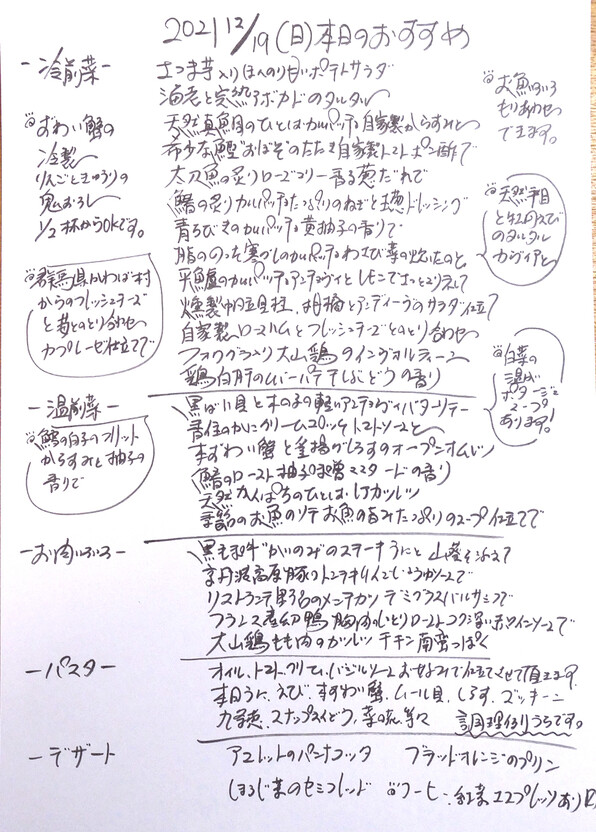 2021 12/19(日)本日のおすすめ
-冷前菜-
さつま芋入りほんのり甘いポテトサラダ
海老と完熟アボカドのタルタル
天然真鯛のひとはカルパッチョ自家製からすみと
希少な鰹"おぼそ"のたたき自家製トマトポン酢で
太刀魚の炙りローズマリー香る葱だれで
鰆の炙りカルパッチョたっぷりのねぎと玉葱ドレッシング
青ちびきのカルパッチョ黄柚子の香りで
脂ののった寒ぶしのカルパッチョわさび菜の炊いたのと
平鱸のカルパッチョアンチョヴィとレモンでさっとソテして
燻製帆立貝柱、柑橘とアンディーヴのサラダ仕立て
自家製ロースハムとフレッシュチーズとのとり合わせ
フォワグラ入り大山鶏のインヴォルティーニ
鶏白肝のムパーパテぶどうの香り
ずわい蟹の
冷製
りんごときゅうりの
鬼おろし
1/2杯からOKです。
群馬県かわば村
からのフレッシュチーズ
と苺とのとり合わせ
カプレーゼ仕立てで
お魚いろいろ
もりあわせ
できます。
天然平目
と牡丹えび
のタルタル
カヴィアと
白菜の
温かい
ポタージュ
スープ
あります!
-温前菜-
黒ばい貝ときのこの軽いアンチョヴィバターソテー
香住のかにクリームコロッケトマトソースと
本ずわい蟹と釜揚げしらすのオープンオムレツ
鰆のロースト柚子味噌マスタードの香り
天然かんぱちのひとはレアカツレツ
季節のお魚のソテお魚の旨みたっぷりのスープ仕立てで
鱈の白子のフリット
からすみと柚子の
香りで
-お肉いろいろ-
黒毛和牛"かいのみ"のステーキうにと山葵を添えて
京丹波高原豚のトンテキりんごしょうがソースで
リストランテ野呂のメンチカツデミグラスバルサミコで
フランス産幼鴨胸肉のしっとりローストコク深い赤ワインソースで
大山鶏もも肉のカツレツチキン南蛮っぽく
-パスタ-
オイル、トマト、クリーム、バジルソースお好みで仕立てさせて頂きます。
本日うに、えび、本ずわい蟹、ムール貝、しらす、ズッキーニ
九条葱、スナップえんどう、菜の花、等々 調理例うらです。
-デザート
アマレットのパンナコッタ ブラッドオレンジのプリン
ほうじ茶のセミフレッド コーヒー、紅茶エスプレッソあり〼